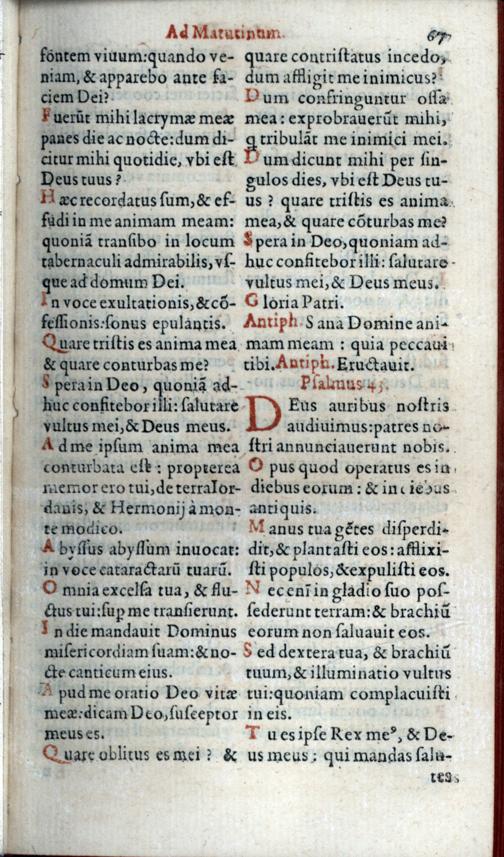 Ad Matutinum.
67
fontem viuum:quando ve-
niam, & apparebo ante fa-
ciem Dei?
Fuerũt mihi lacrymæ meæ
panes die ac nocte: dum di-
citur mihi quotidie, vbi est
Deus tuus ?
Hæc recordatus sum, & ef-
fudi in me animam meam:
quoniã transibo in locum
tabernaculi admirabilis, vs-
que ad domum Dei.
In voce exultationis, & cõ-
fessionis: sonus epulantis.
Quare tristis es anima mea
& quare conturbas me?
Spera in Deo, quoniã ad-
huc confitebor illi: salutare
vultus mei, & Deus meus.
Ad me ipsum anima mea
conturbata est : propterea
memor ero tui, de terra Ior-
danis, & Hermonij à mon-
te modico.
Abyssus abyssum inuocat:
in voce cataractarũ tuarũ.
Omnia excelsa tua, & flu-
ctus tui: sup me transierunt.
In die mandauit Dominus
misericordiam suam: & no-
cte canticum eius.
Apud me oratio Deo vitæ
meæ: dicam Deo, susceptor
meus es.
Quare oblitus es mei ? &
quare contristatus incedo,
dum affligit me inimicus?
Dum confringuntur ossa
mea : exprobrauerũt mihi,
q tribulãt me inimici mei.
Dum dicunt mihi per sin-
gulos dies, vbi est Deus tu-
us ? quare tristis es anima
mea, & quare cõturbas me?
Spera in Deo, quoniam ad-
huc confitebor illi: salutare
vultus mei, & Deus meus.
Gloria Patri.
Antiph. Sana Domine ani-
mam meam : quia peccaui
tibi. Antiph. Eructauit.
Psalmus 43.
DEus auribus nostris
audiuimus: patres no-
stri annunciauerunt nobis.
Opus quod operatus es in
diebus eorum : & in diebus
antiquis.
Manus tua gẽtes disperdi-
dit, & plantasti eos : afflixi-
sti populos, & expulisti eos.
Nec enĩ in gladio suo pos-
sederunt terram: & brachiũ
eorum non saluauit eos.
Sed dextera tua, & brachiũ
tuum, & illuminatio vultus
tui: quoniam complacuisti
in eis.
Tu es ipse Rex meꝰ, & De-
us meus : qui mandas salu-
tes